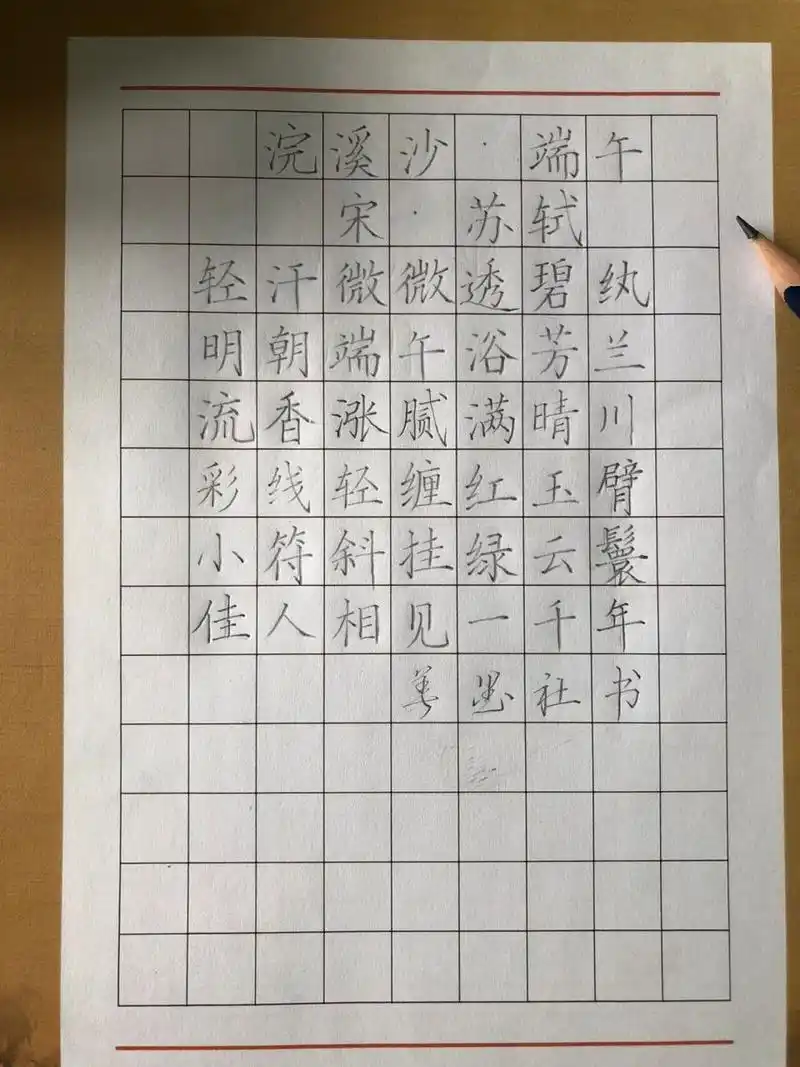 浣溪沙·端午
宋·苏轼
轻汗微微透碧纨
明朝端午浴芳兰
流香涨腻满晴川
彩线轻缠红玉臂
小符斜挂绿云鬟
佳人相见一千年
社书